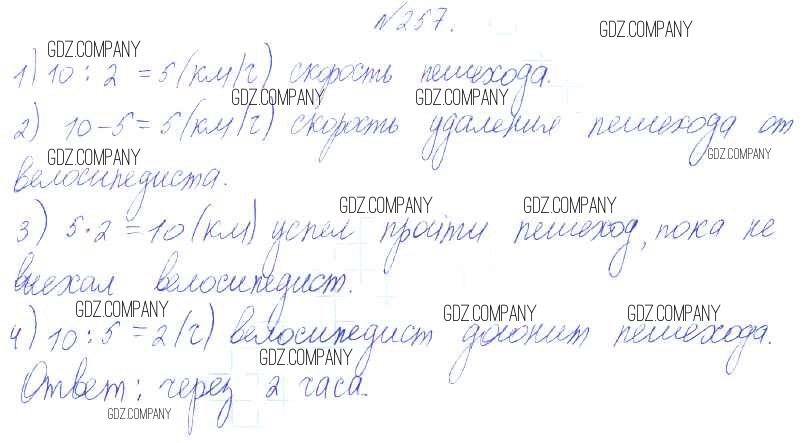 №257.
GDZ.COMPANY
GDZ.COMPANY
1) 10 : 2 = 5 (км/г) скорость пешехода.
GDZ.COMPANY GDZ.COMPANY
2) 10 - 5 = 5 (км/г) скорость удаления пешехода от
GDZ.COMPANY GDZ.COMPANY
велосипедиста.
GDZ.COMPANY GDZ.COMPANY
3) 5 · 2 = 10 (км) успел пройти пешеход, пока не
выехал велосипедист.
GDZ.COMPANY GDZ.COMPANY GDZ.COMPANY
4) 10 : 5 = 2 (г) велосипедист догонит пешехода.
GDZ.COMPANY
Ответ: через 2 часа.
GDZ.COMPANY